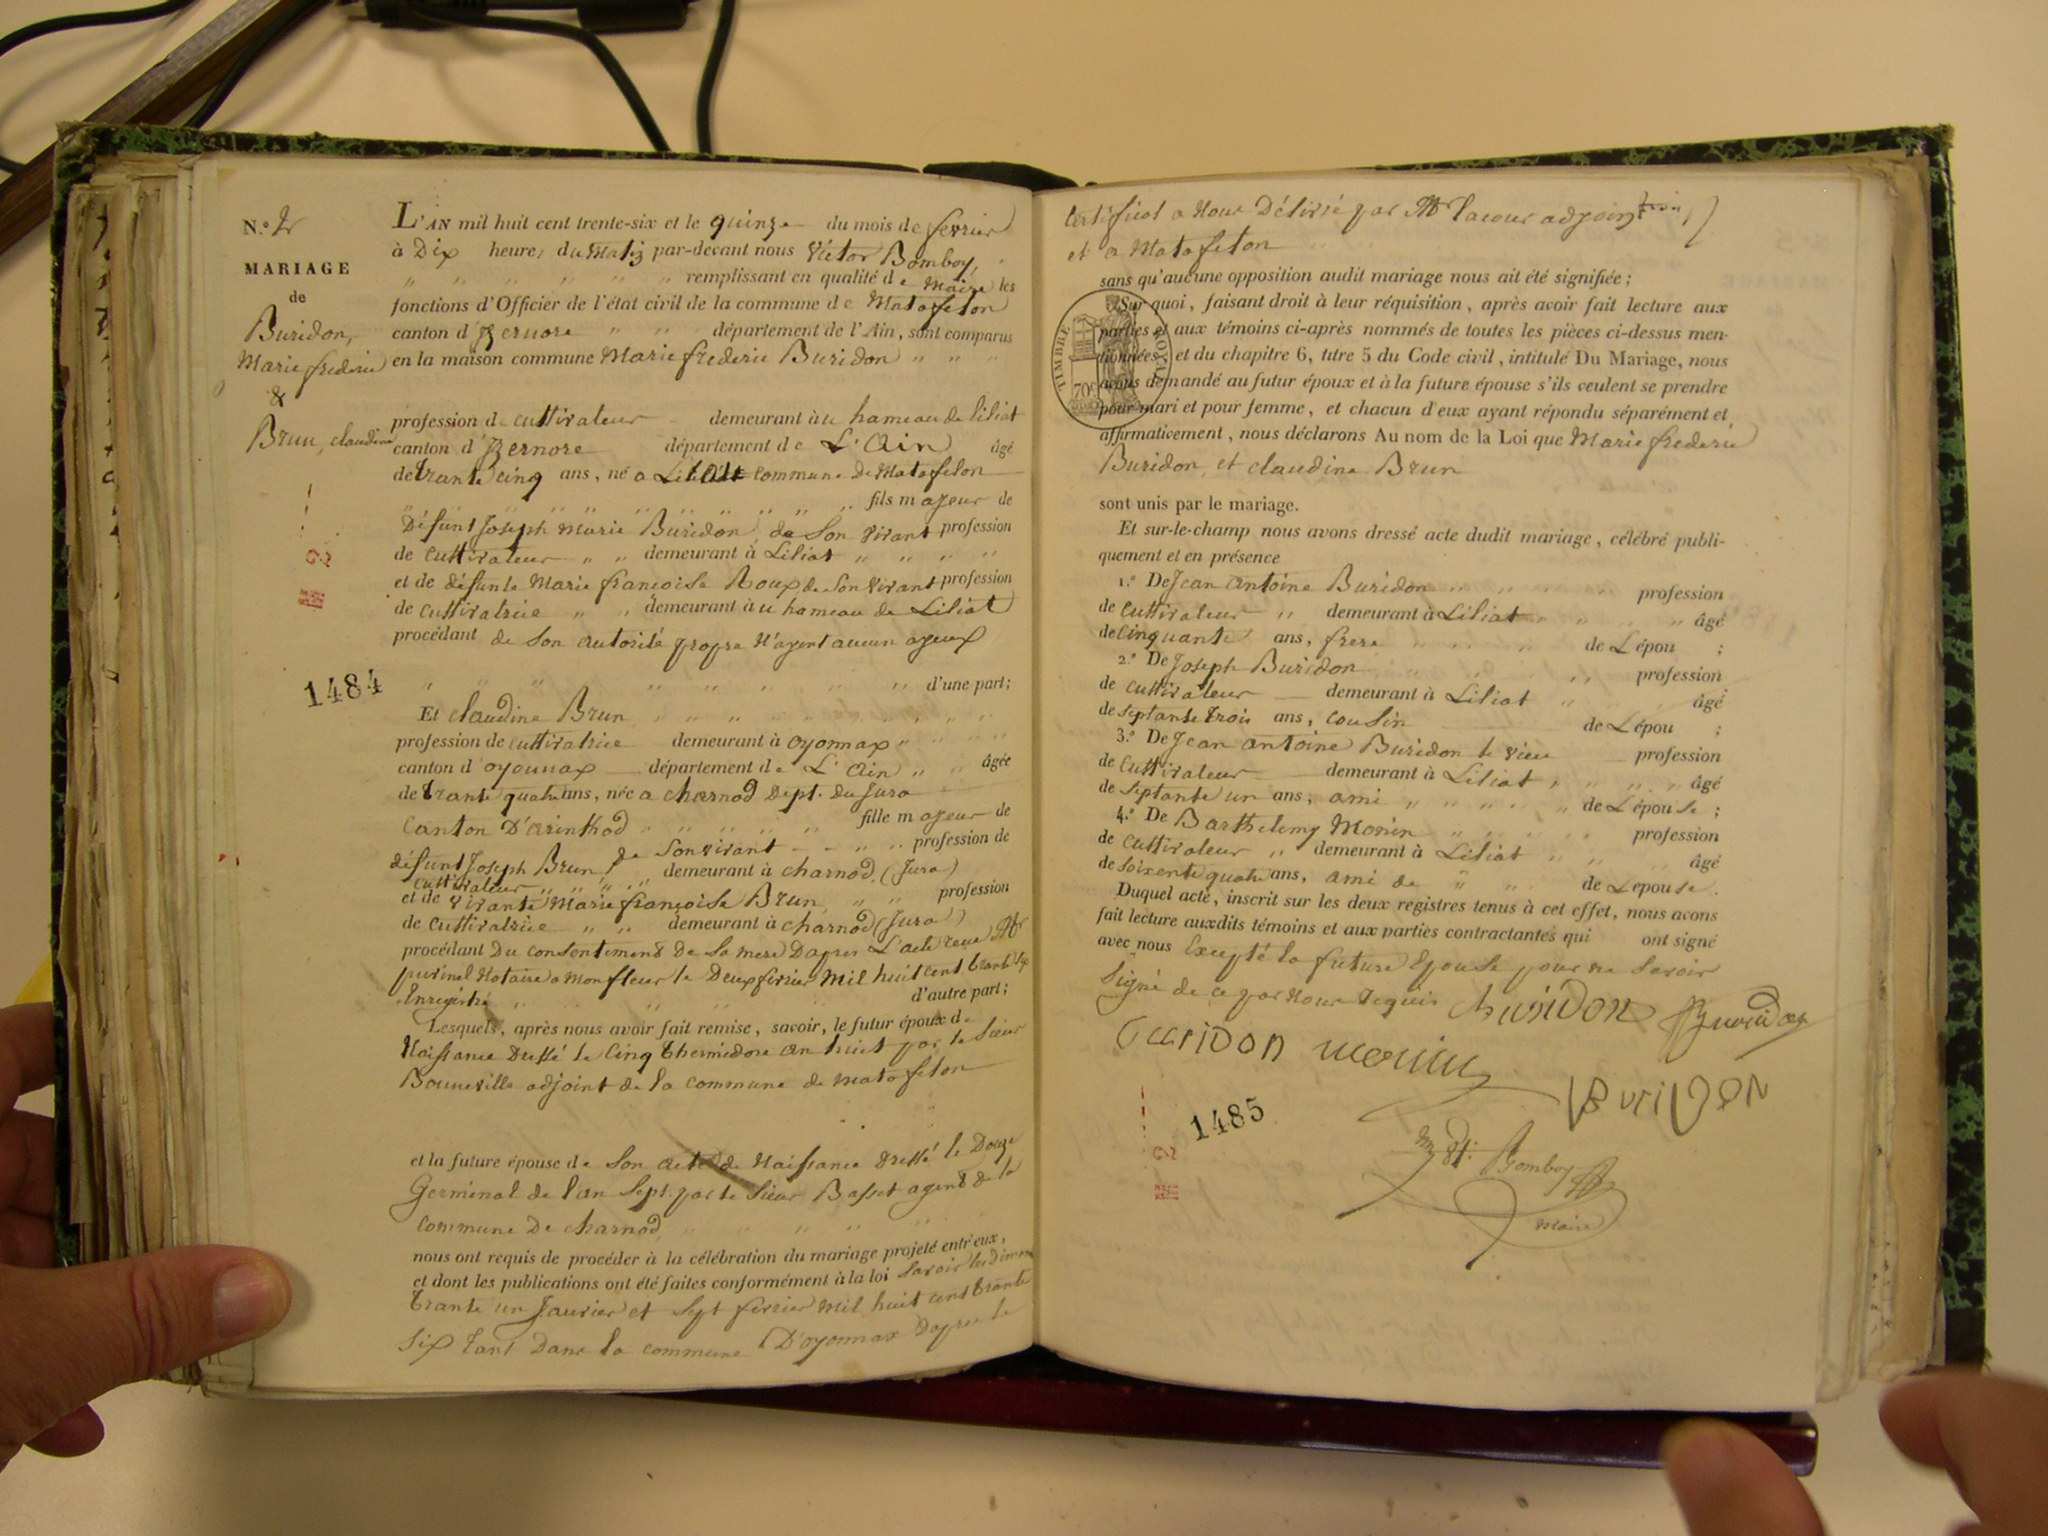 N.º 2
MARIAGE
de
Buridon,
Marie frederic
&
Brun, claudine
1484
L'AN mil huit cent trente-six et le quinze du mois de fevrier
à Dix heures du Matin par-devant nous Victor Bomboy
remplissant en qualité de Maire les
fonctions d'Officier de l'état civil de la commune de Matafelon
canton d'Izernore département de l'Ain, sont comparus
en la maison commune Marie frederic Buridon
profession de cultivateur demeurant à u hameau de liliat
canton d'Izernore département de L'Ain âgé
de trante cinq ans, né a Liliat commune de Matafelon
fils majeur de
Défunt Joseph Marie Buridon, de Son vivant profession
de cultivateur demeurant à Liliat
et de défunte Marie françoise Roux de Son vivant profession
de cultivatrice demeurant à u hameau de Liliat
procédant de Son autorité propre N'ayent aucun ayeux
d'une part;
Et claudine Brun
profession de cultivatrice demeurant à oyonnax
canton d'oyonnax département de L'Ain âgée
de trante quatre ans, née a charnod Dept. du Jura
Canton D'arinthod fille majeur de
défunt Joseph Brun, de Son vivant profession de
cultivateur demeurant à charnod (Jura)
et de vivante Marie françoise Brun profession
de cultivatrice demeurant à charnod (Jura)
procédant Du consentement De Sa mere Dapres L'acte recu Mr
Notaire a Monfleur le Deux fevrier mil huit cent trante six
Enregistré d'autre part;
Lesquels, après nous avoir fait remise, savoir, le futur époux de
Naissance Dressé le Cinq thermidore an huit par le Sieur
Bonneville adjoint de la commune de Matafelon
et la future épouse de Son acte de Naissance dressé le Douze
Germinal de l'an Sept. par le Sieur Basset agent de la
commune De charnod
nous ont requis de procéder à la célébration du mariage projeté entr'eux,
et dont les publications ont été faites conformément à la loi Savoir les dim
trante un Janvier et Sept fevrier mil huit cent trante
Six tant Dans la commune D'oyonnax Dapres le
certificat a Nous Délivré par Mr lacour adjoint
et a Matafelon
sans qu'aucune opposition audit mariage nous ait été signifiée;
Sur quoi, faisant droit à leur réquisition, après avoir fait lecture aux
parties et aux témoins ci-après nommés de toutes les pièces ci-dessus men-
tionnées, et du chapitre 6, titre 5 du Code civil, intitulé Du Mariage, nous
avons demandé au futur époux et à la future épouse s'ils veulent se prendre
pour mari et pour femme, et chacun d'eux ayant répondu séparément et
affirmativement, nous déclarons Au nom de la Loi que Marie frederic
Buridon, et claudine Brun
TIMBRE ROYAL
70c
sont unis par le mariage.
Et sur-le-champ nous avons dressé acte dudit mariage, célébré publi-
quement et en présence
1.º De Jean antoine Buridon profession
de cultivateur demeurant à Liliat âgé
de cinquante ans, frere de L'épou ;
2.º De Joseph Buridon profession
de cultivateur demeurant à Liliat âgé
de septante trois ans, cousin de L'épou ;
3.º De Jean antoine Buridon le vieu profession
de cultivateur demeurant à Liliat âgé
de septante un ans, ami de L'épouse ;
4.º De Barthelemy Monin profession
de cultivateur demeurant à Liliat âgé
de soixente quatre ans, ami de de L'épouse.
Duquel acte, inscrit sur les deux registres tenus à cet effet, nous avons
fait lecture auxdits témoins et aux parties contractantes qui ont signé
avec nous Excepté la future Epouse pour ne Savoir
Signé de ce par Nous Requis
Buridon
monin
BuriDON
1485
Bomboy
Maire